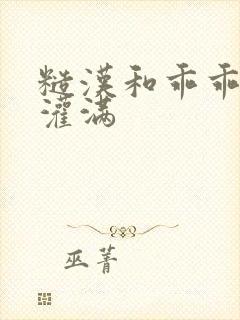 糙漢和乖乖
灌满
巫菁